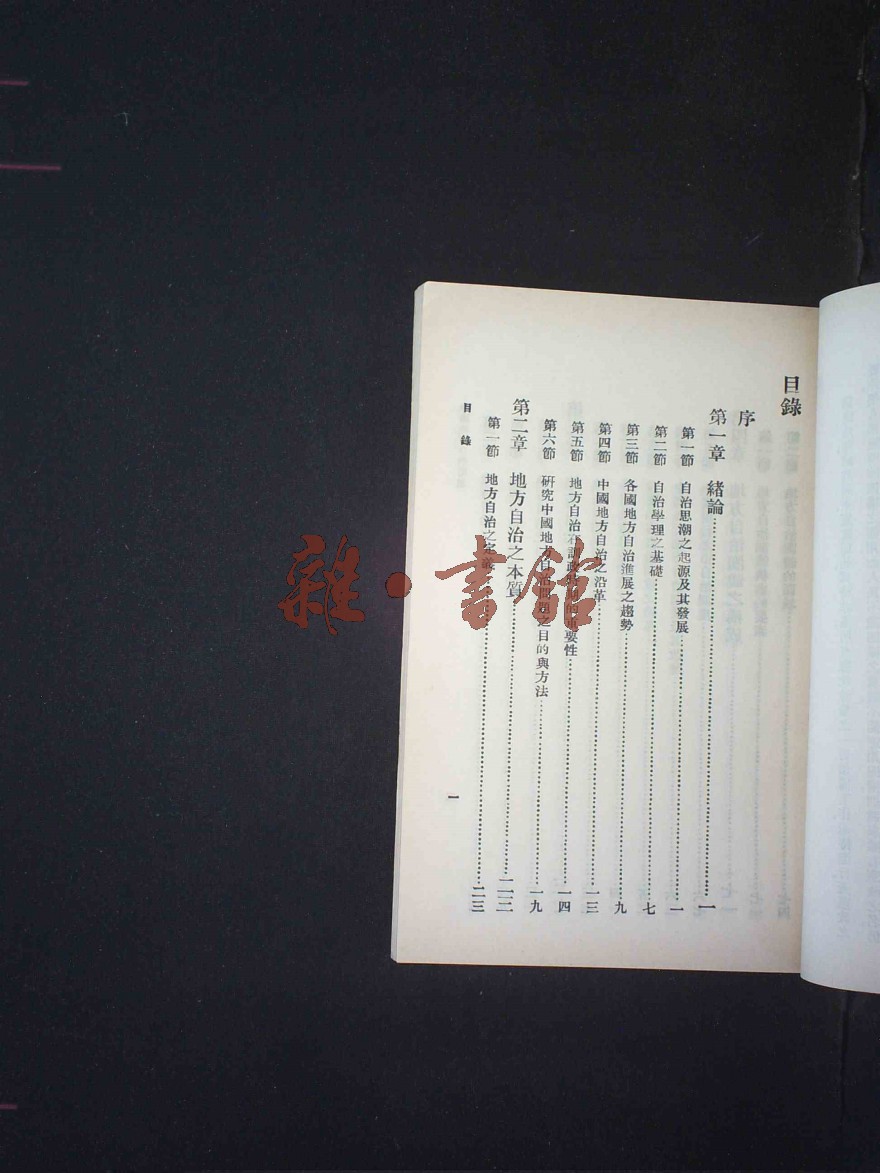 目錄
序
第一章 緒論……一
第一節 自治思潮之起源及其發展……一
第二節 自治學理之基礎……七
第三節 各國地方自治進展之趨勢……九
第四節 中國地方自治之沿革……一三
第五節 地方自治在訓政時期的重要性……一四
第六節 研究中國地方自治問題之目的與方法……一九
第二章 地方自治之本質……二二
第一節 地方自治之定義……二三
目錄
一
雜·書館